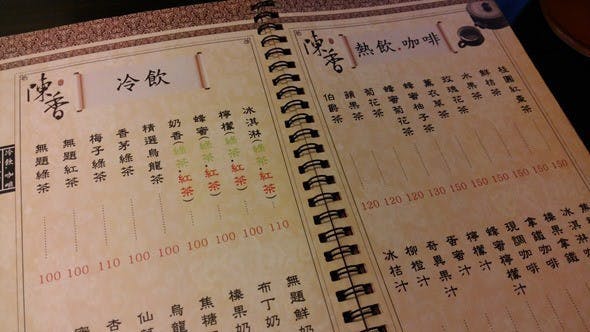 陳香
冷飲
冰淇淋(綠茶.紅茶) 110
檸檬(綠茶.紅茶) 100
蜂蜜(綠茶.紅茶) 100
奶香(綠茶.紅茶) 100
精選烏龍茶 100
香茅綠茶 100
梅子綠茶 110
無題紅茶 100
無題綠茶 100
無題鮮奶
布丁奶
榛果奶
焦糖
烏龍
仙
杏
陳香
熱飲.咖啡
桂圓紅棗茶 150
鮮桔茶 150
水果茶 150
玫瑰花茶 150
薰衣草茶 150
蜂蜜柚子茶 130
蜂蜜菊花茶 130
菊花茶 120
蘋果茶 120
伯爵茶 120
冰淇淋咖
榛果拿鐵
拿鐵咖啡
現調咖啡
蜂蜜檸檬汁
檸檬汁
奇異果汁
柳橙汁
冰桔汁